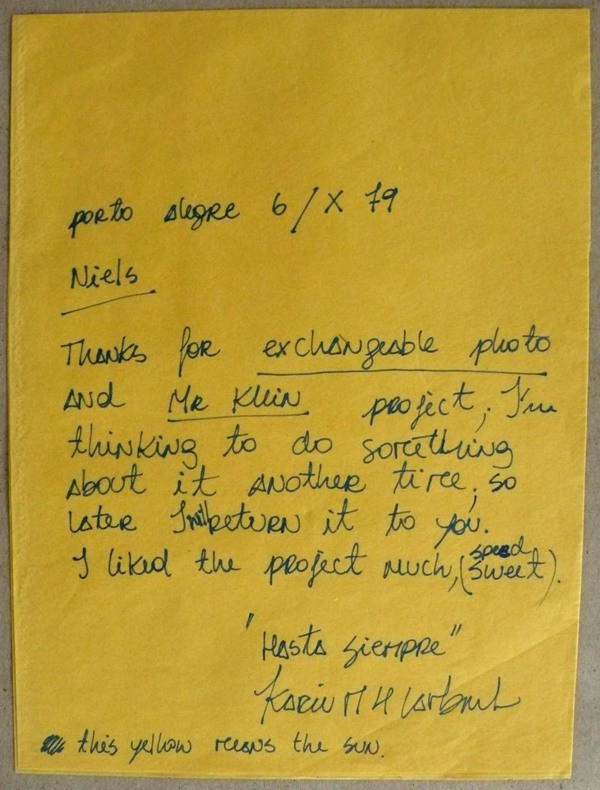 porto alegre 6/X 79
Niels
Thanks for exchangeable photo
and Mr Klein project, I'm
thinking to do something
about it another time, so
later I will return it to you.
I liked the project much, (speed sweet).
"Hasta siempre"
Karin M H
this yellow means the sun.